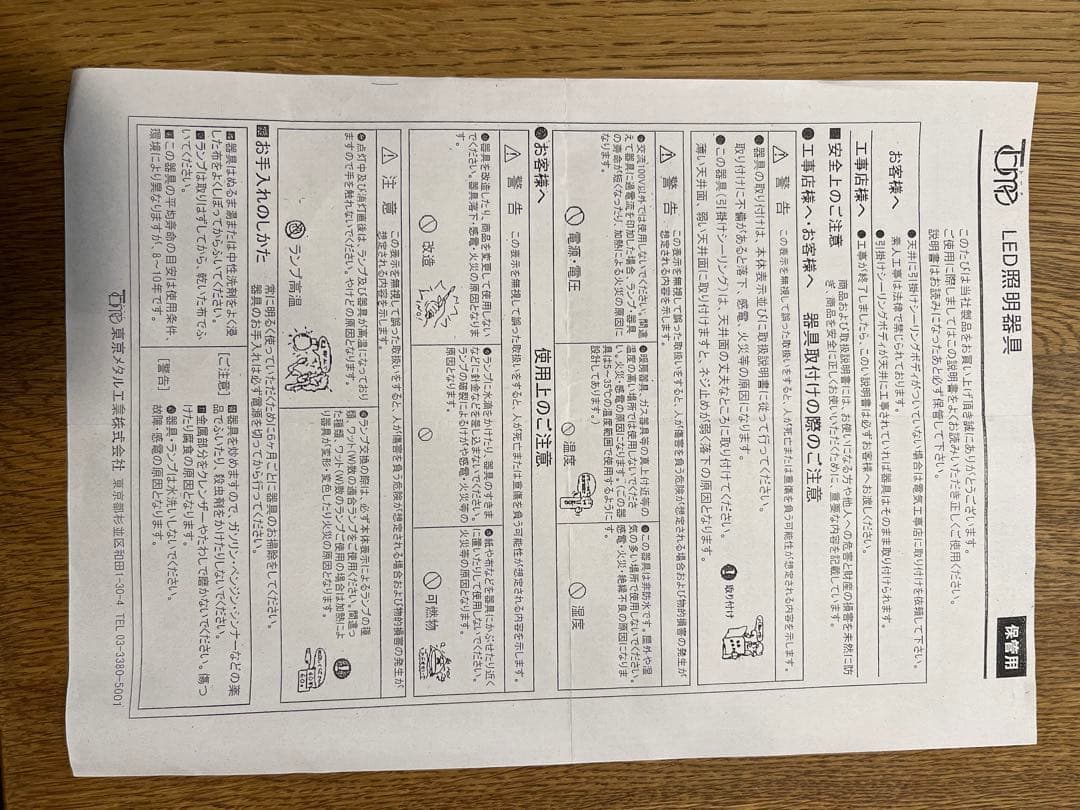 Tone LED照明器具
保管用
このたびは当社製品をお買い上げ頂き誠にありがとうございます。
ご使用に際しましてはこの説明書をよくお読みいただき正しくご使用ください。
説明書はお読みになったあと必ず保管して下さい。
お客様へ
●天井に引掛けシーリングボディがついていない場合は電気工事店に取り付けを依頼して下さい。
素人工事は法律で禁じられております。
●引掛けシーリングボディが天井に工事されていれば器具はそのまま取り付けられます。
工事店様へ ●工事が終了しましたら、この説明書は必ずお客様へお渡しください。
■安全上のご注意
商品および取扱説明書には、お使いになる方や他人への危害と財産の損害を未然に防
ぎ、商品を安全に正しくお使いいただくために、重要な内容を記載しています。
●工事店様へ・お客様へ 器具取付けの際のご注意
⚠ 警告 この表示を無視して誤った取扱いをすると、人が死亡または重傷を負う可能性が想定される内容を示します。
●器具の取り付けは、本体表示並びに取扱説明書に従って行ってください。
取り付けに不備があると落下、感電、火災等の原因になります。
●この器具(引掛けシーリング)は、天井面の丈夫なところに取り付けてください。
(薄い天井面、弱い天井面に取り付けますと、ネジ止めが弱く落下の原因となります。
取り付け
⚠ 警告 この表示を無視して誤った取扱いをすると、人が傷害を負う危険が想定される場合および物的損害の発生が
想定される内容を示します。
●交流100V以外では使用しないでください。間違
えて器具に過電流を印加した場合、ランプ・器具
の寿命が短くなったり、加熱による火災の原因に
なります。
電源・電圧
●暖房器具、ガス器具等の真上付近等の
温度の高い場所では使用しないでくださ
い。火災・感電の原因になります。(この器
具は5〜35℃の温度範囲で使用するように
設計してあります。)
温度
●この器具は非防水です。屋外や湿
気の多い場所で使用しないでください。
感電・火災・絶縁不良の原因になりま
す。
湿度
●お客様へ 使用上のご注意
⚠ 警告 この表示を無視して誤った取扱いをすると、人が死亡または重傷を負う可能性が想定される内容を示します。
●器具を改造したり、商品を変更して使用しない
でください。器具落下・感電・火災の原因となりま
す。
改造
●ランプに水滴をかけたり、器具のすきま
などに針金などを差し込まないでください。
ランプの破裂によるけがや感電・火災等の
原因となります。
●紙や布などを器具にかぶせたり近く
に置いたりして使用しないでください。
火災等の原因となります。
可燃物
⚠ 注意 この表示を無視して誤った取扱いをすると、人が傷害を負う危険が想定される場合および物的損害の発生が
想定される内容を示します。
●点灯中及び消灯直後は、ランプ及び器具が高温になっており
ますので手を触れないでください。やけどの原因となります。
ランプ高温
●ランプ交換の際は、必ず本体表示によるランプの種
類、ワット(W)数の適合ランプをご使用ください。間違っ
た種類、ワット(W)数のランプご使用の場合は加熱によ
り器具が変形・変色したり火災の原因となります。
お手入れのしかた
常に明るく使っていただくために6ヶ月ごとに器具のお掃除をしてください。
器具のお手入れは必ず電源を切ってから行ってください。
■器具はぬるま湯または中性洗剤をよく浸
した布をよくしぼってからふいてください。
■ランプは取りはずしてから、乾いた布でふ
いてください。
■この器具の平均寿命の目安は使用条件、
環境により異なりますが、8〜10年です。
[ご注意]
■器具を炒めますので、ガソリン・ベンジン・シンナーなどの薬
品でふいたり、殺虫剤をかけたりしないでください。
■金属部分をクレンザーやたわしで磨かないでください。傷つ
けたり腐食の原因となります。
[警告]
●器具・ランプは水洗いしないでください。
故障・感電の原因となります。
Tone 東京メタル工業株式会社 東京都杉並区和田1-30-4 TEL 03-3380-5001